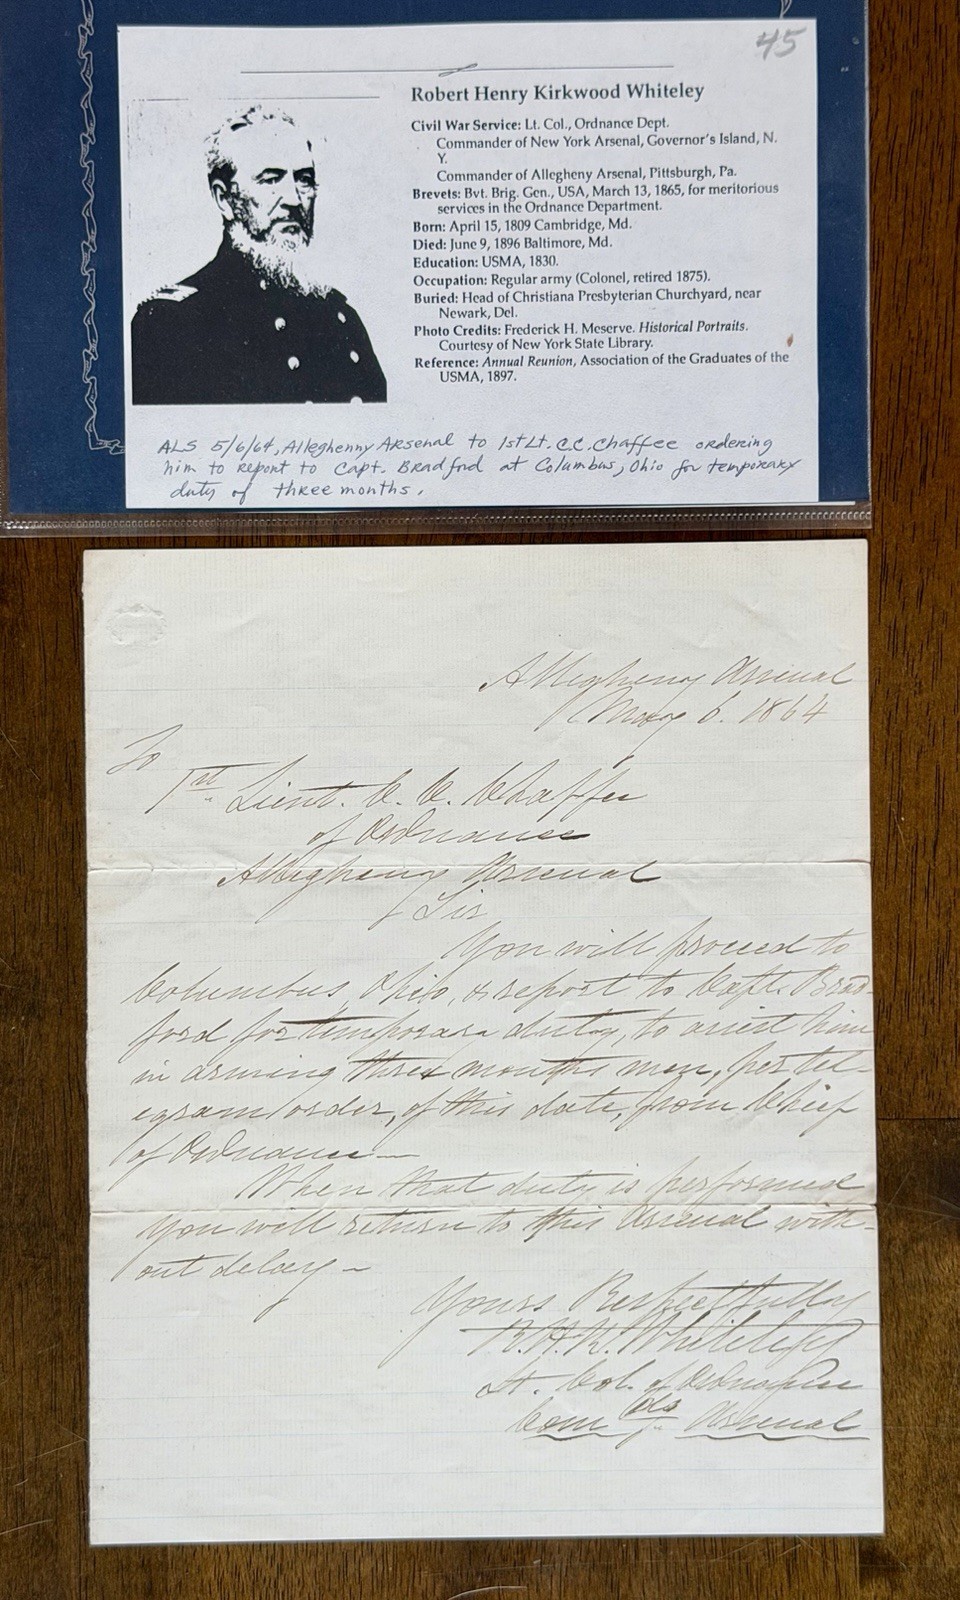 45
Robert Henry Kirkwood Whiteley
Civil War Service: Lt. Col., Ordnance Dept.
Commander of New York Arsenal, Governor's Island, N.
Y.
Commander of Allegheny Arsenal, Pittsburgh, Pa.
Brevets: Bvt. Brig. Gen., USA, March 13, 1865, for meritorious
services in the Ordnance Department.
Born: April 15, 1809 Cambridge, Md.
Died: June 9, 1896 Baltimore, Md.
Education: USMA, 1830.
Occupation: Regular army (Colonel, retired 1875).
Buried: Head of Christiana Presbyterian Churchyard, near
Newark, Del.
Photo Credits: Frederick H. Meserve. Historical Portraits.
Courtesy of New York State Library.
Reference: Annual Reunion, Association of the Graduates of the
USMA, 1897.
ALS 5/6/64, Alleghenny Arsenal to 1st Lt. C.C. Chaffee ordering
him to report to Capt. Bradford at Columbus, Ohio for temporary
duty of three months.
Allegheny Arsenal
May 6. 1864
To
1st Lieut. C. C. Chaffee
of Ordnance
Allegheny Arsenal
Sir
You will proceed to
Columbus, Ohio, & report to Capt. Brad-
ford for temporary duty, to assist him
in arming three months men, per tel-
egram/order, of this date, from Chief
of Ordnance—
When that duty is performed
you will return to this Arsenal with-
out delay—
Yours Respectfully
R.H.K. Whiteley
Lt. Col. of Ordnance
Comdg Arsenal